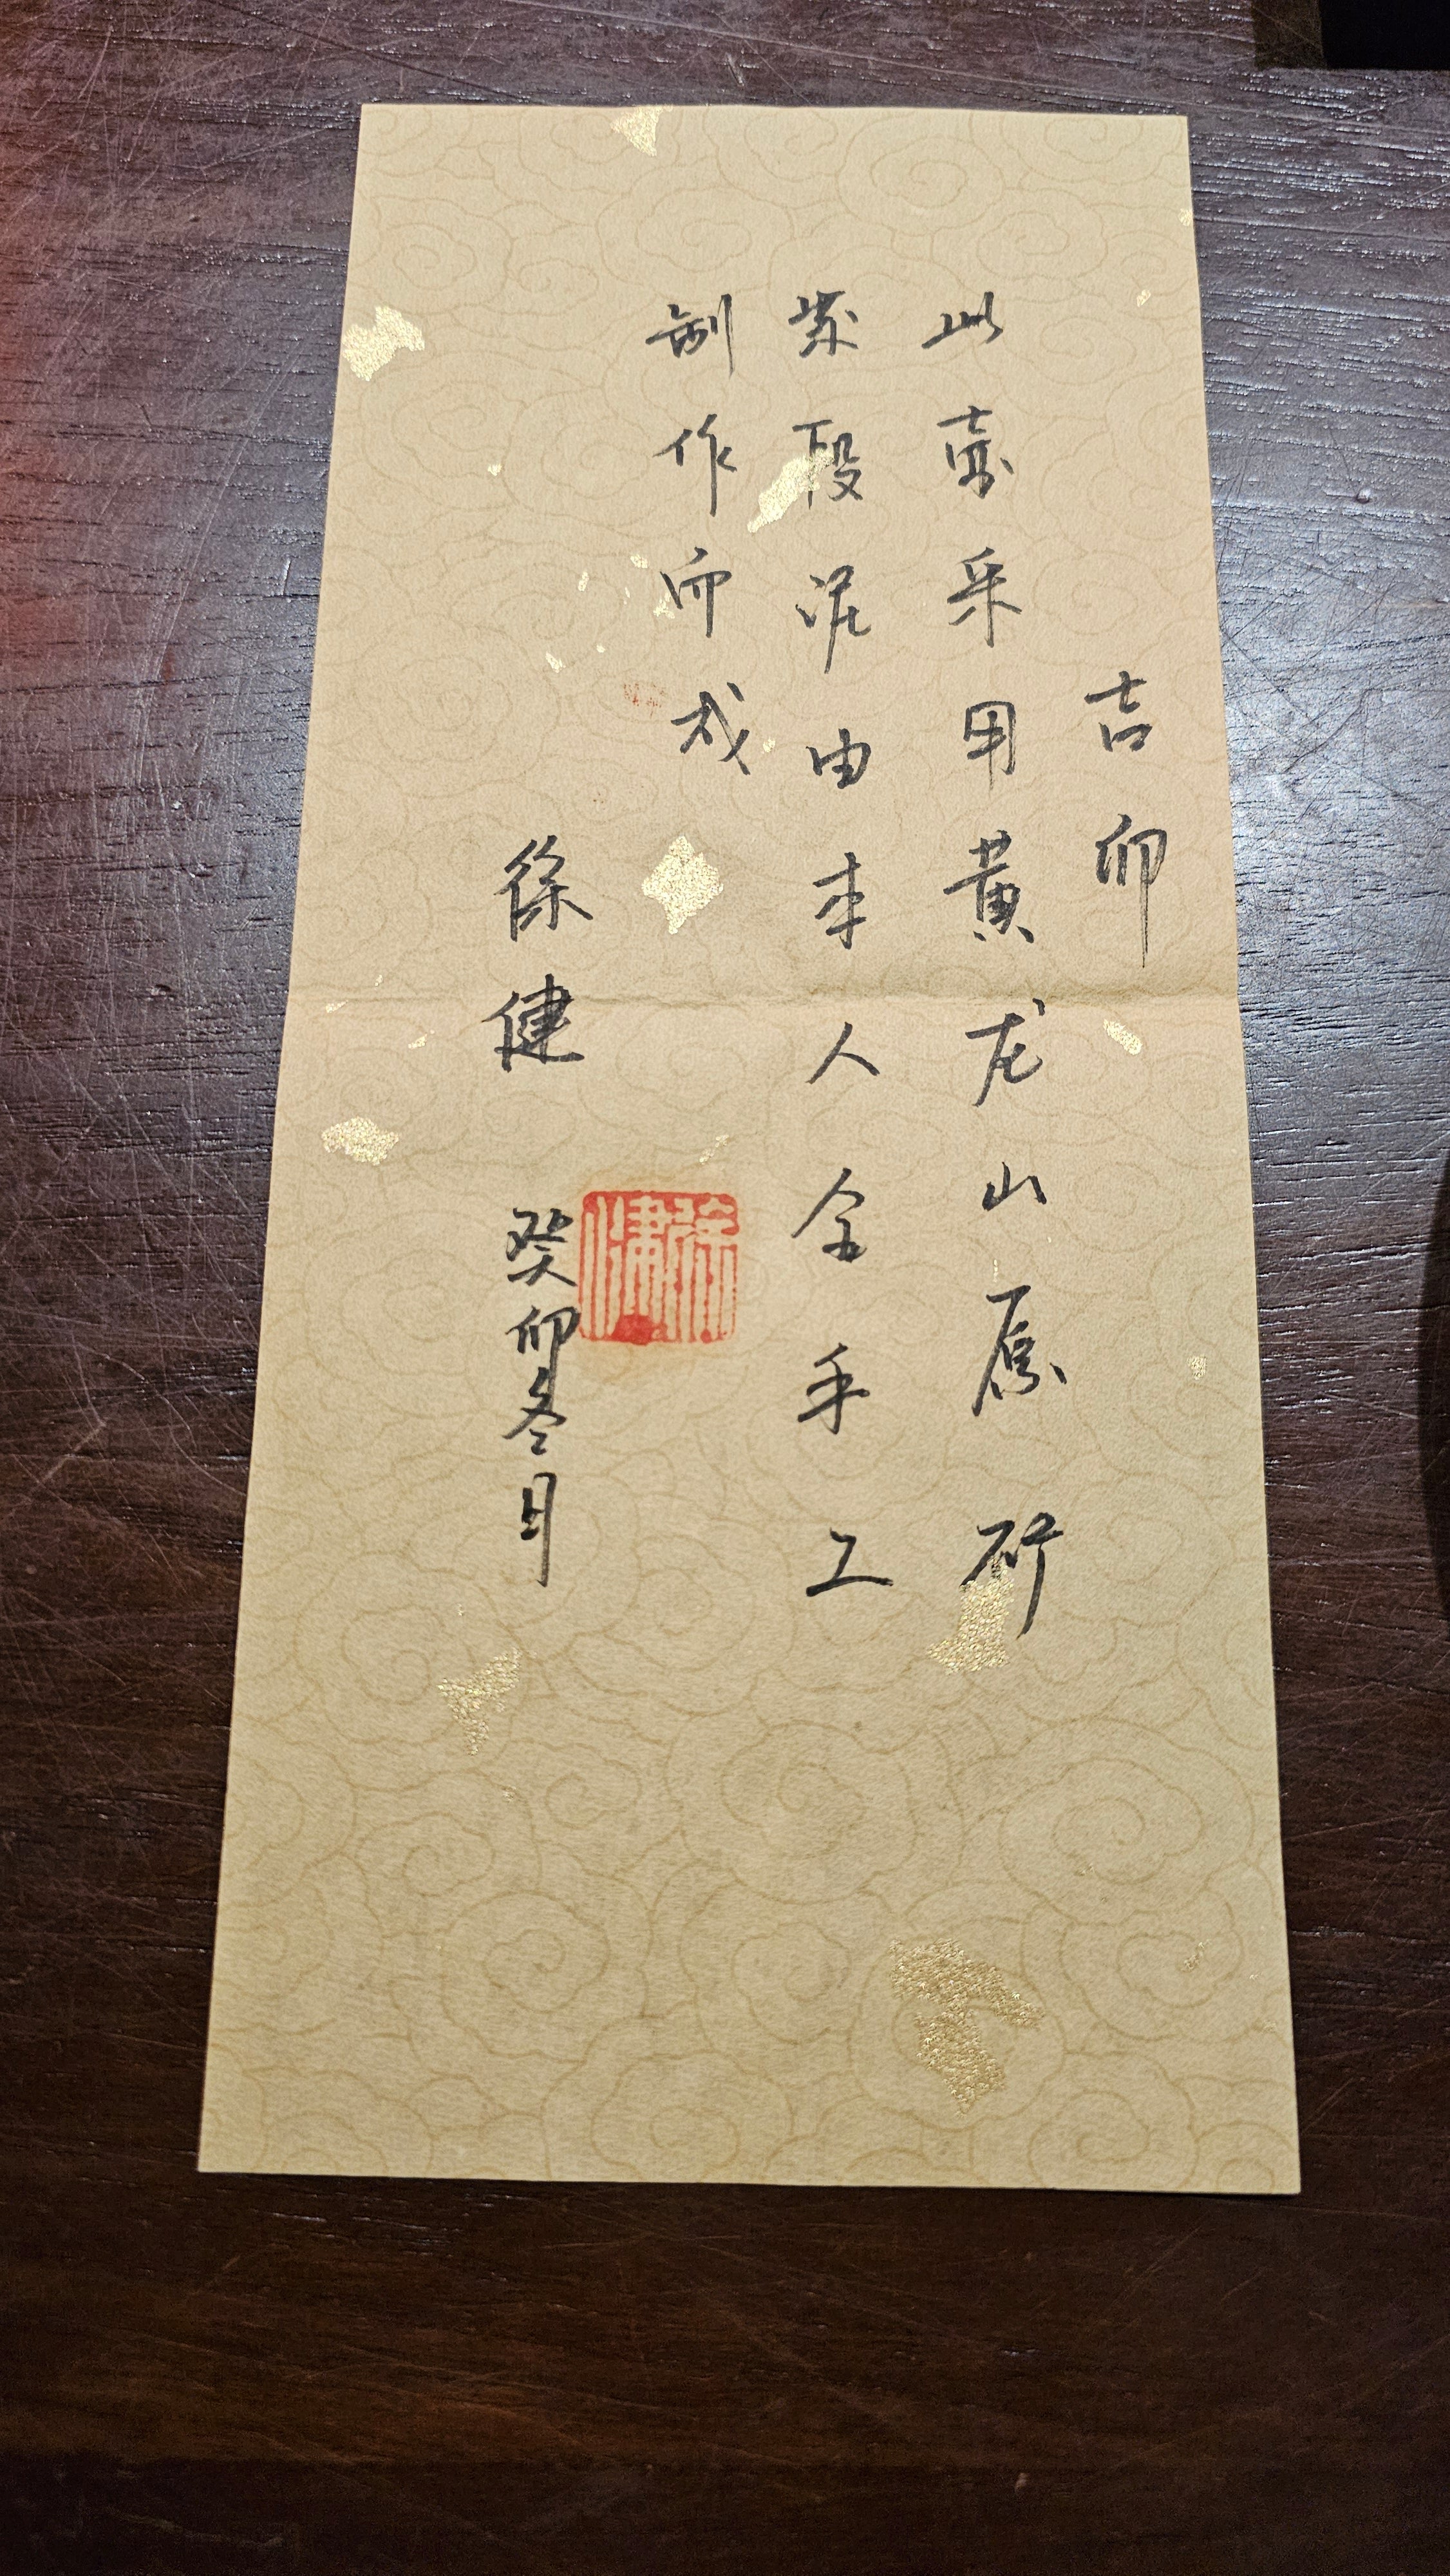 吉卯
此壶采用黄龙山原矿
紫段泥由本人全手工
制作而成
徐健 癸卯冬月
徐健